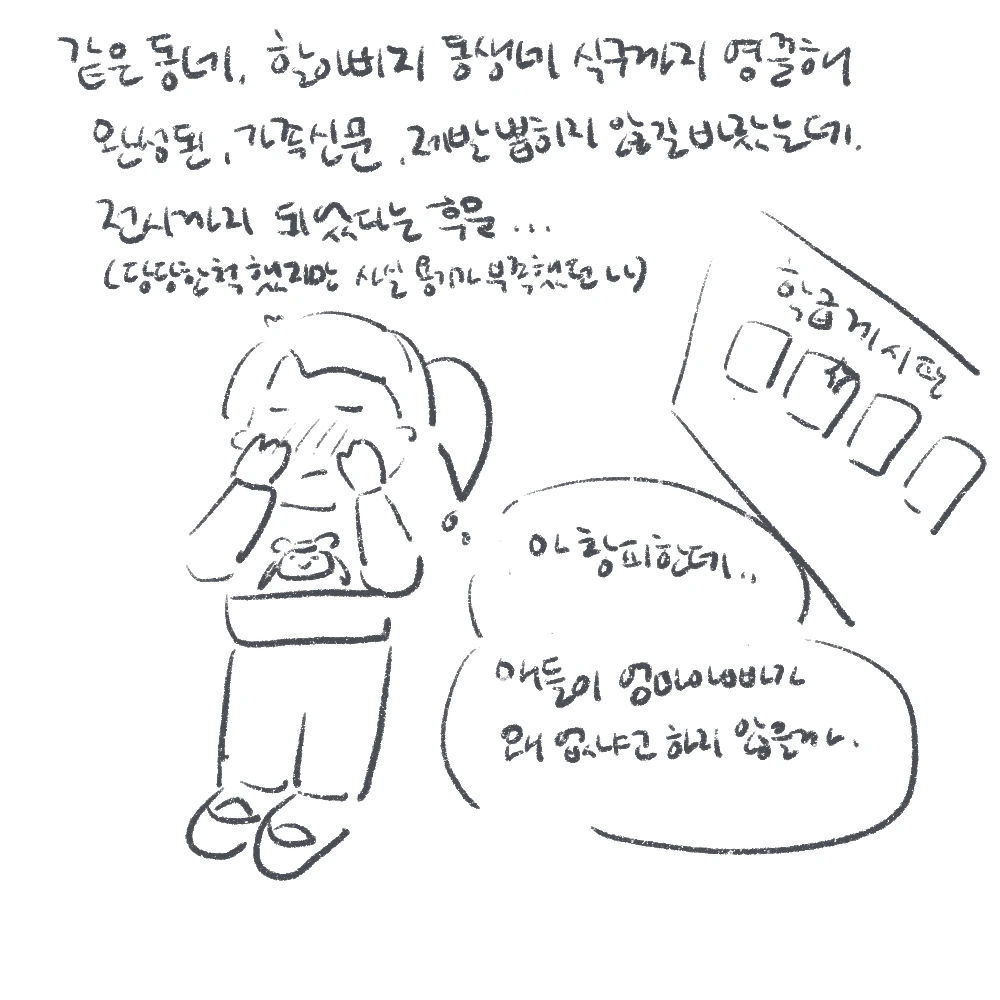 같은 동네, 할아버지 동생네 식구까지 영끌해
완성된, 가족신문, 제발 뽑히지 않길 바랐는데.
전시까지 되었다는 후문...
(당당한척 했지만 사실 용기가 부족했던 나)
학급게시판
아 창피한데..
애들이 엄마아빠가
왜 없냐고 하지 않을까.